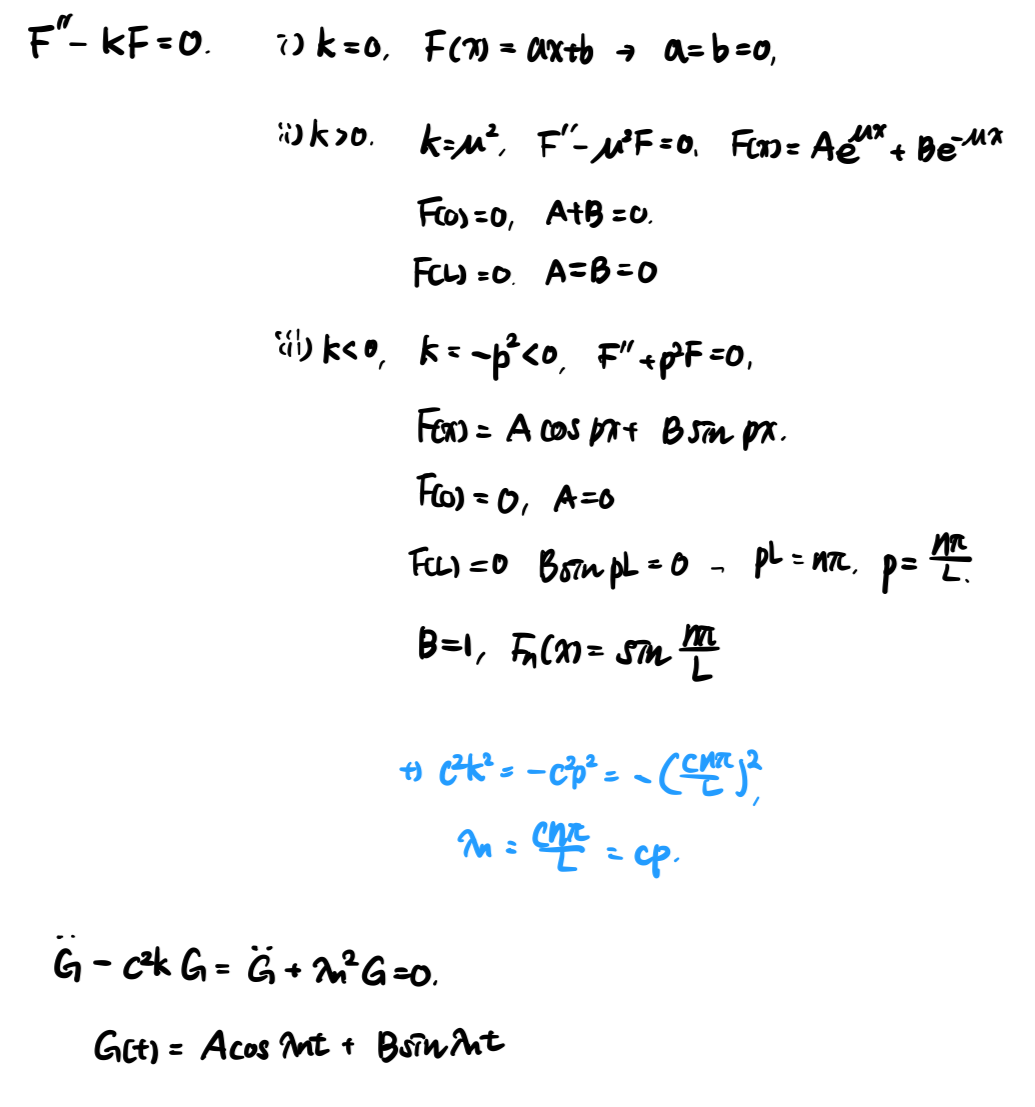 F'' - kF = 0. i) k = 0, F(x) = ax+b → a = b = 0,
ii) k > 0. k = μ², F'' - μ²F = 0. F(x) = Ae^{μx} + Be^{-μx}
F(0) = 0, A+B = 0.
F(L) = 0. A = B = 0
iii) k < 0, k = -p² < 0, F'' + p²F = 0,
F(x) = A cos px + B sin px.
F(0) = 0, A = 0
F(L) = 0 B sin pL = 0 → pL = nπ. p = \frac{nπ}{L}.
B = 1, F_n(x) = sin \frac{nπ}{L}
+) c²k² = -c²p² = -(\frac{cnπ}{L})²,
λn = \frac{cnπ}{L} = cp.
G̈ - c²k G = G̈ + λn² G = 0.
G(t) = A cos λnt + B sin λnt